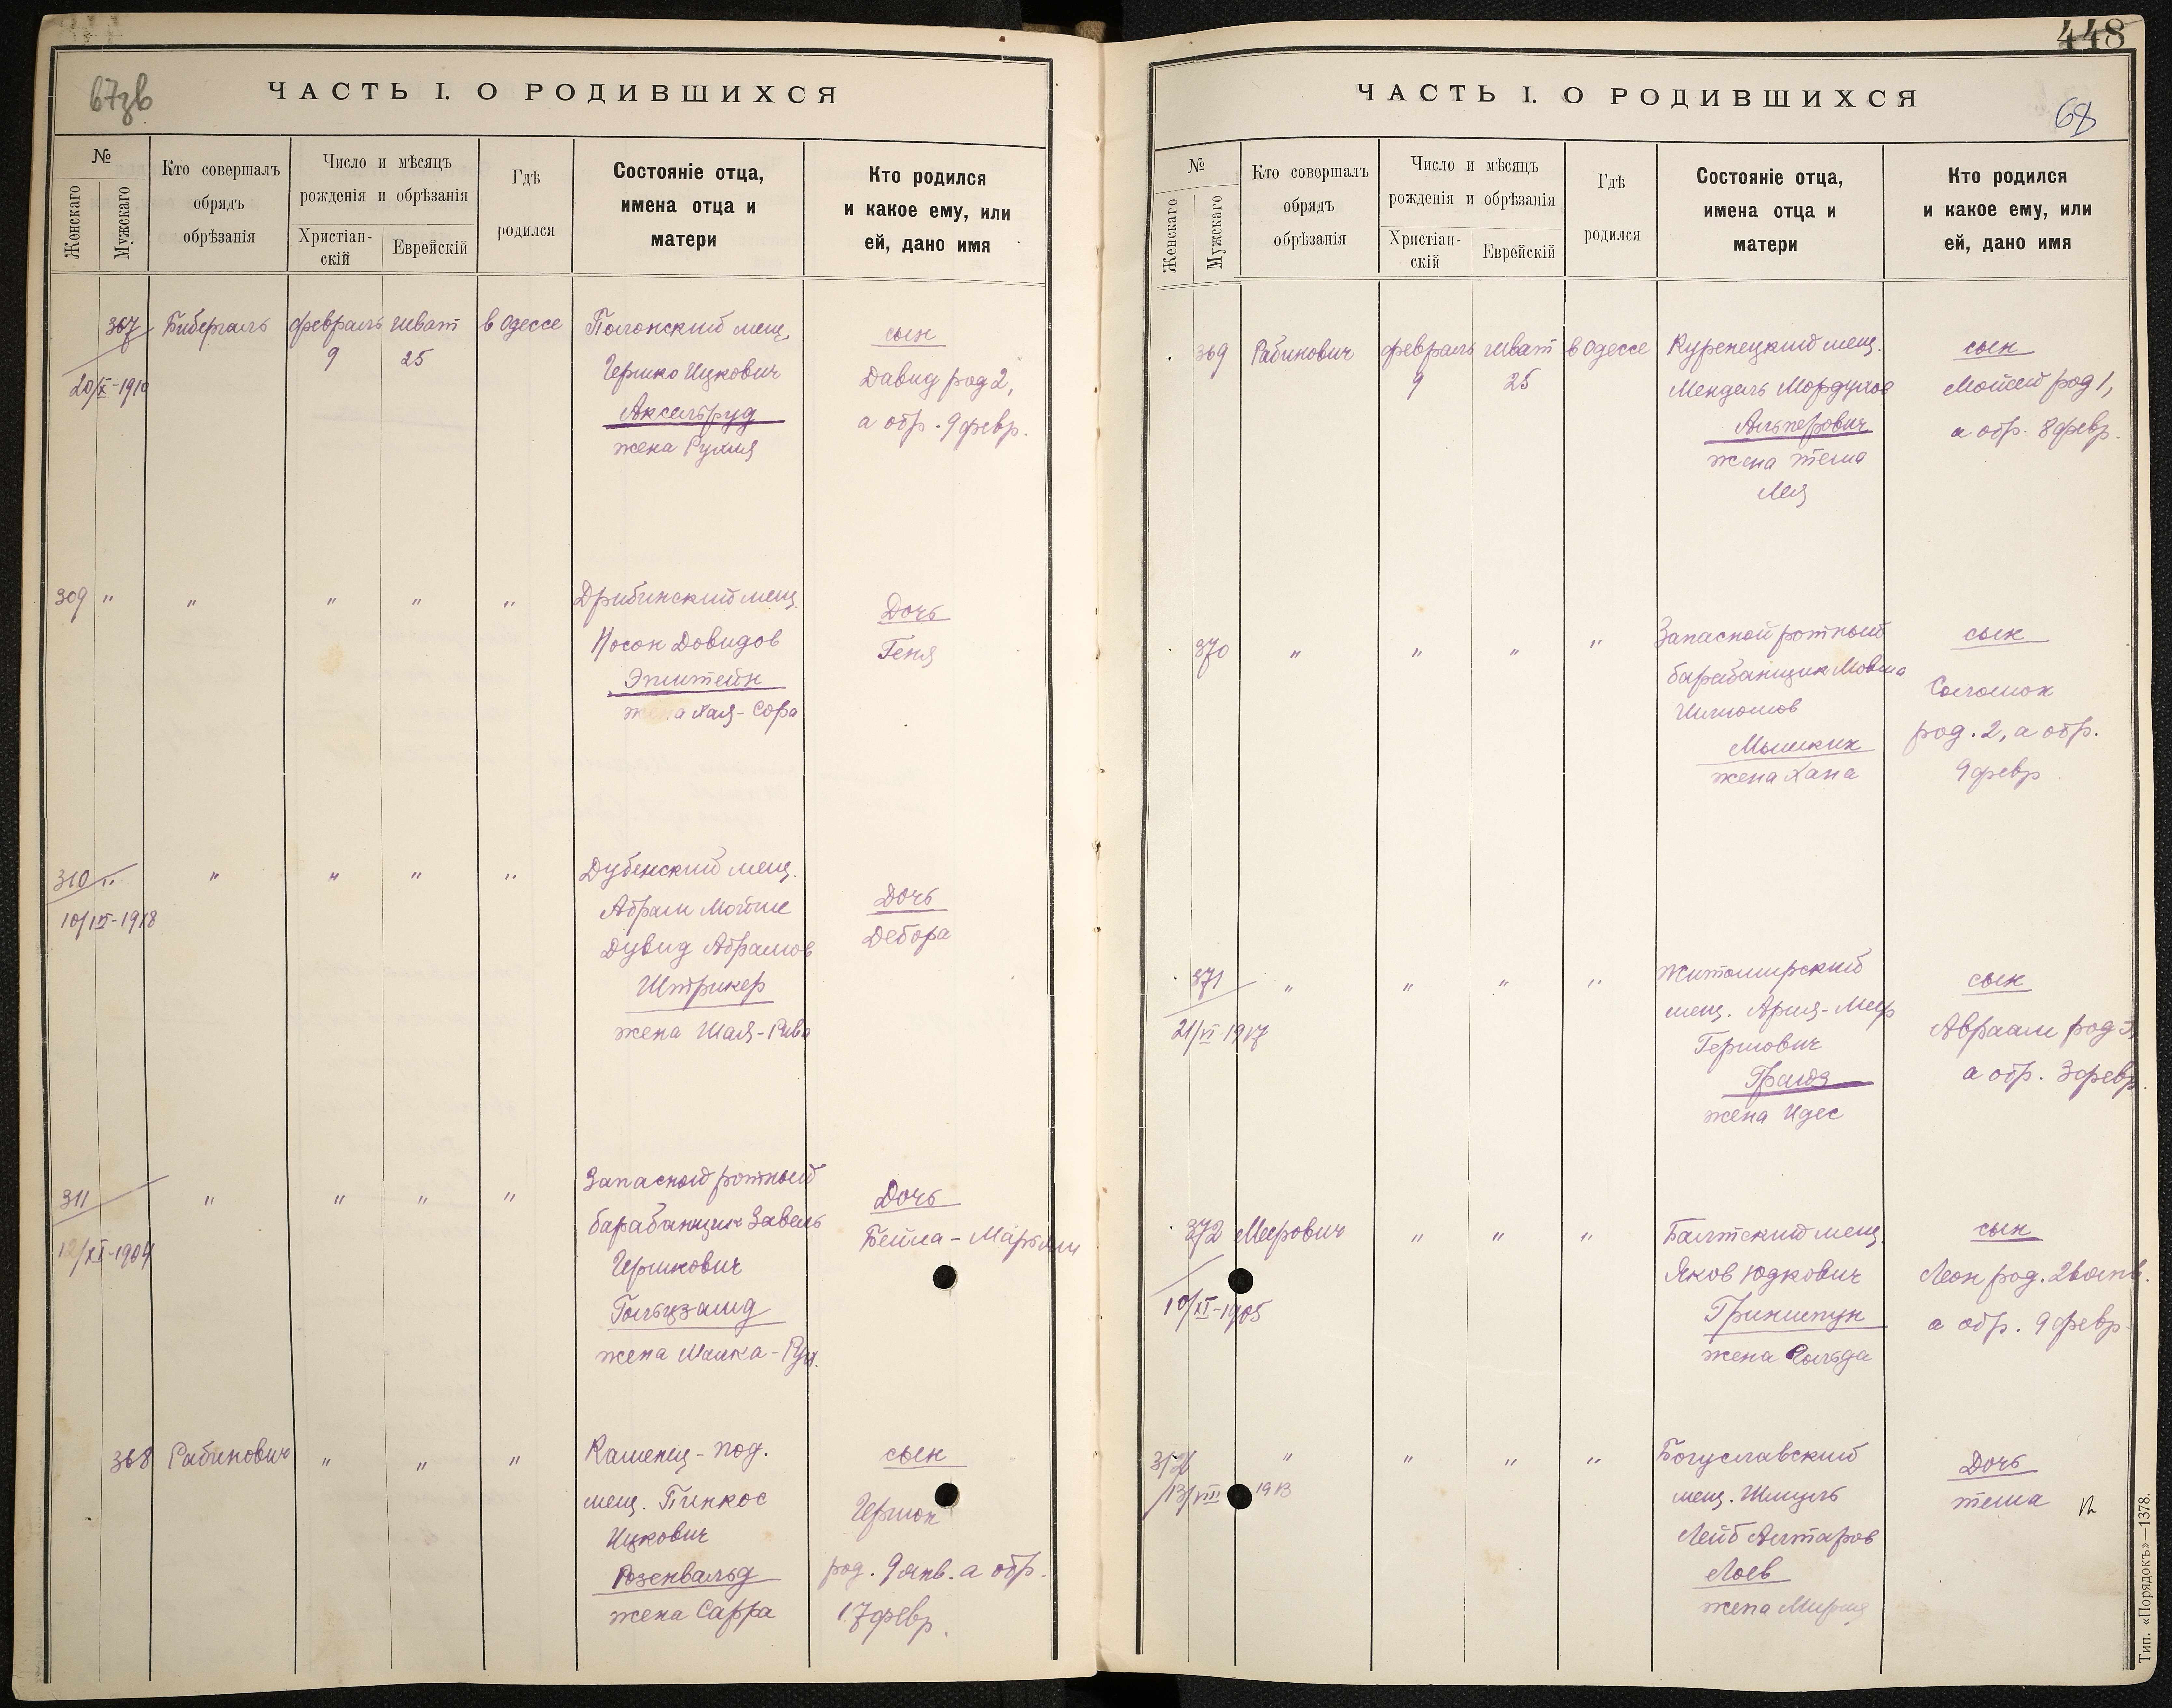 67зв
ЧАСТЬ I. О РОДИВШИХСЯ
№
Женскаго
Мужскаго
Кто совершалъ
обрядъ
обрѣзанія
Число и мѣсяцъ
рожденія и обрѣзанія
Христіан-
скій
Еврейскій
Гдѣ
родился
Состояніе отца,
имена отца и
матери
Кто родился
и какое ему, или
ей, дано имя
367 Бибергаль февраль шват в Одессе Полонский мещ. сын
9 25
20/X-1910 Гершко Ицкович Давид род 2,
Аксельруд а обр. 9 февр.
жена Рухля
309 " " " " " Дрибинский мещ. Дочь
Носон Довидов Геня
Эпштейн
жена Хая-Сора
310 " " " " " Дубенский мещ.
10/IX-1918 Абрам Мойше Дочь
Дувид Абрамов Дебора
Штрикер
жена Шая-Рива
311 " " " " Запасный ротный Дочь
12/XI-1904 барабанщик Завель Бейла-Марьям
Гершкович
Гольцзамд
жена Малка-Рух.
368 Рабинович " " " Каменец-под. сын
мещ. Пинкос Гершон
Ицкович
Розенвальд род. 9 янв. а обр.
жена Сарра 17 февр.
448
ЧАСТЬ I. О РОДИВШИХСЯ
68
№
Женскаго
Мужскаго
Кто совершалъ
обрядъ
обрѣзанія
Число и мѣсяцъ
рожденія и обрѣзанія
Христіан-
скій
Еврейскій
Гдѣ
родился
Состояніе отца,
имена отца и
матери
Кто родился
и какое ему, или
ей, дано имя
369 Рабинович февраль шват в Одессе Куренецкий мещ. сын
9 25 Мендель Мордухов Мойсей род 1,
Альперович а обр. 8 февр.
жена Тема
Лея
370 " " " " Запасной ротный сын
барабанщик Мовша Соломон
Шлиомов род. 2, а обр.
Мышкин 9 февр.
жена Хана
371 " " " " Житомирский сын
21/VI-1917 мещ. Ария-Меер Авраам род 3,
Гершович а обр. 3 февр.
жена Идес
372 Меерович " " " Балтский мещ. сын
10/XI-1905 Яков Юдкович Леон род. 26 янв.
Гриншпун а обр. 9 февр.
жена Гольда
312 " " " " Богуславский Дочь
13/VIII 1913 мещ. Шмуль тема
Лейб Алтаров
Лоев
жена Мирия
Тип. «Порядокъ»—1378.